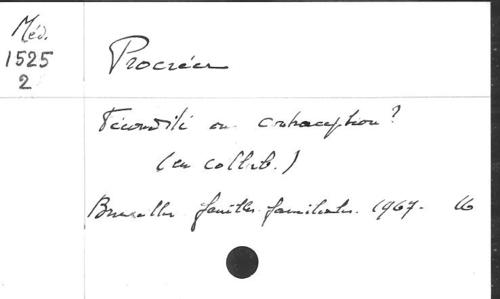 Méd.
1525
2
Procréer
Fécondité ou contraception?
(en collab.)
Bruxelles feuilles familiales. 1967- 16